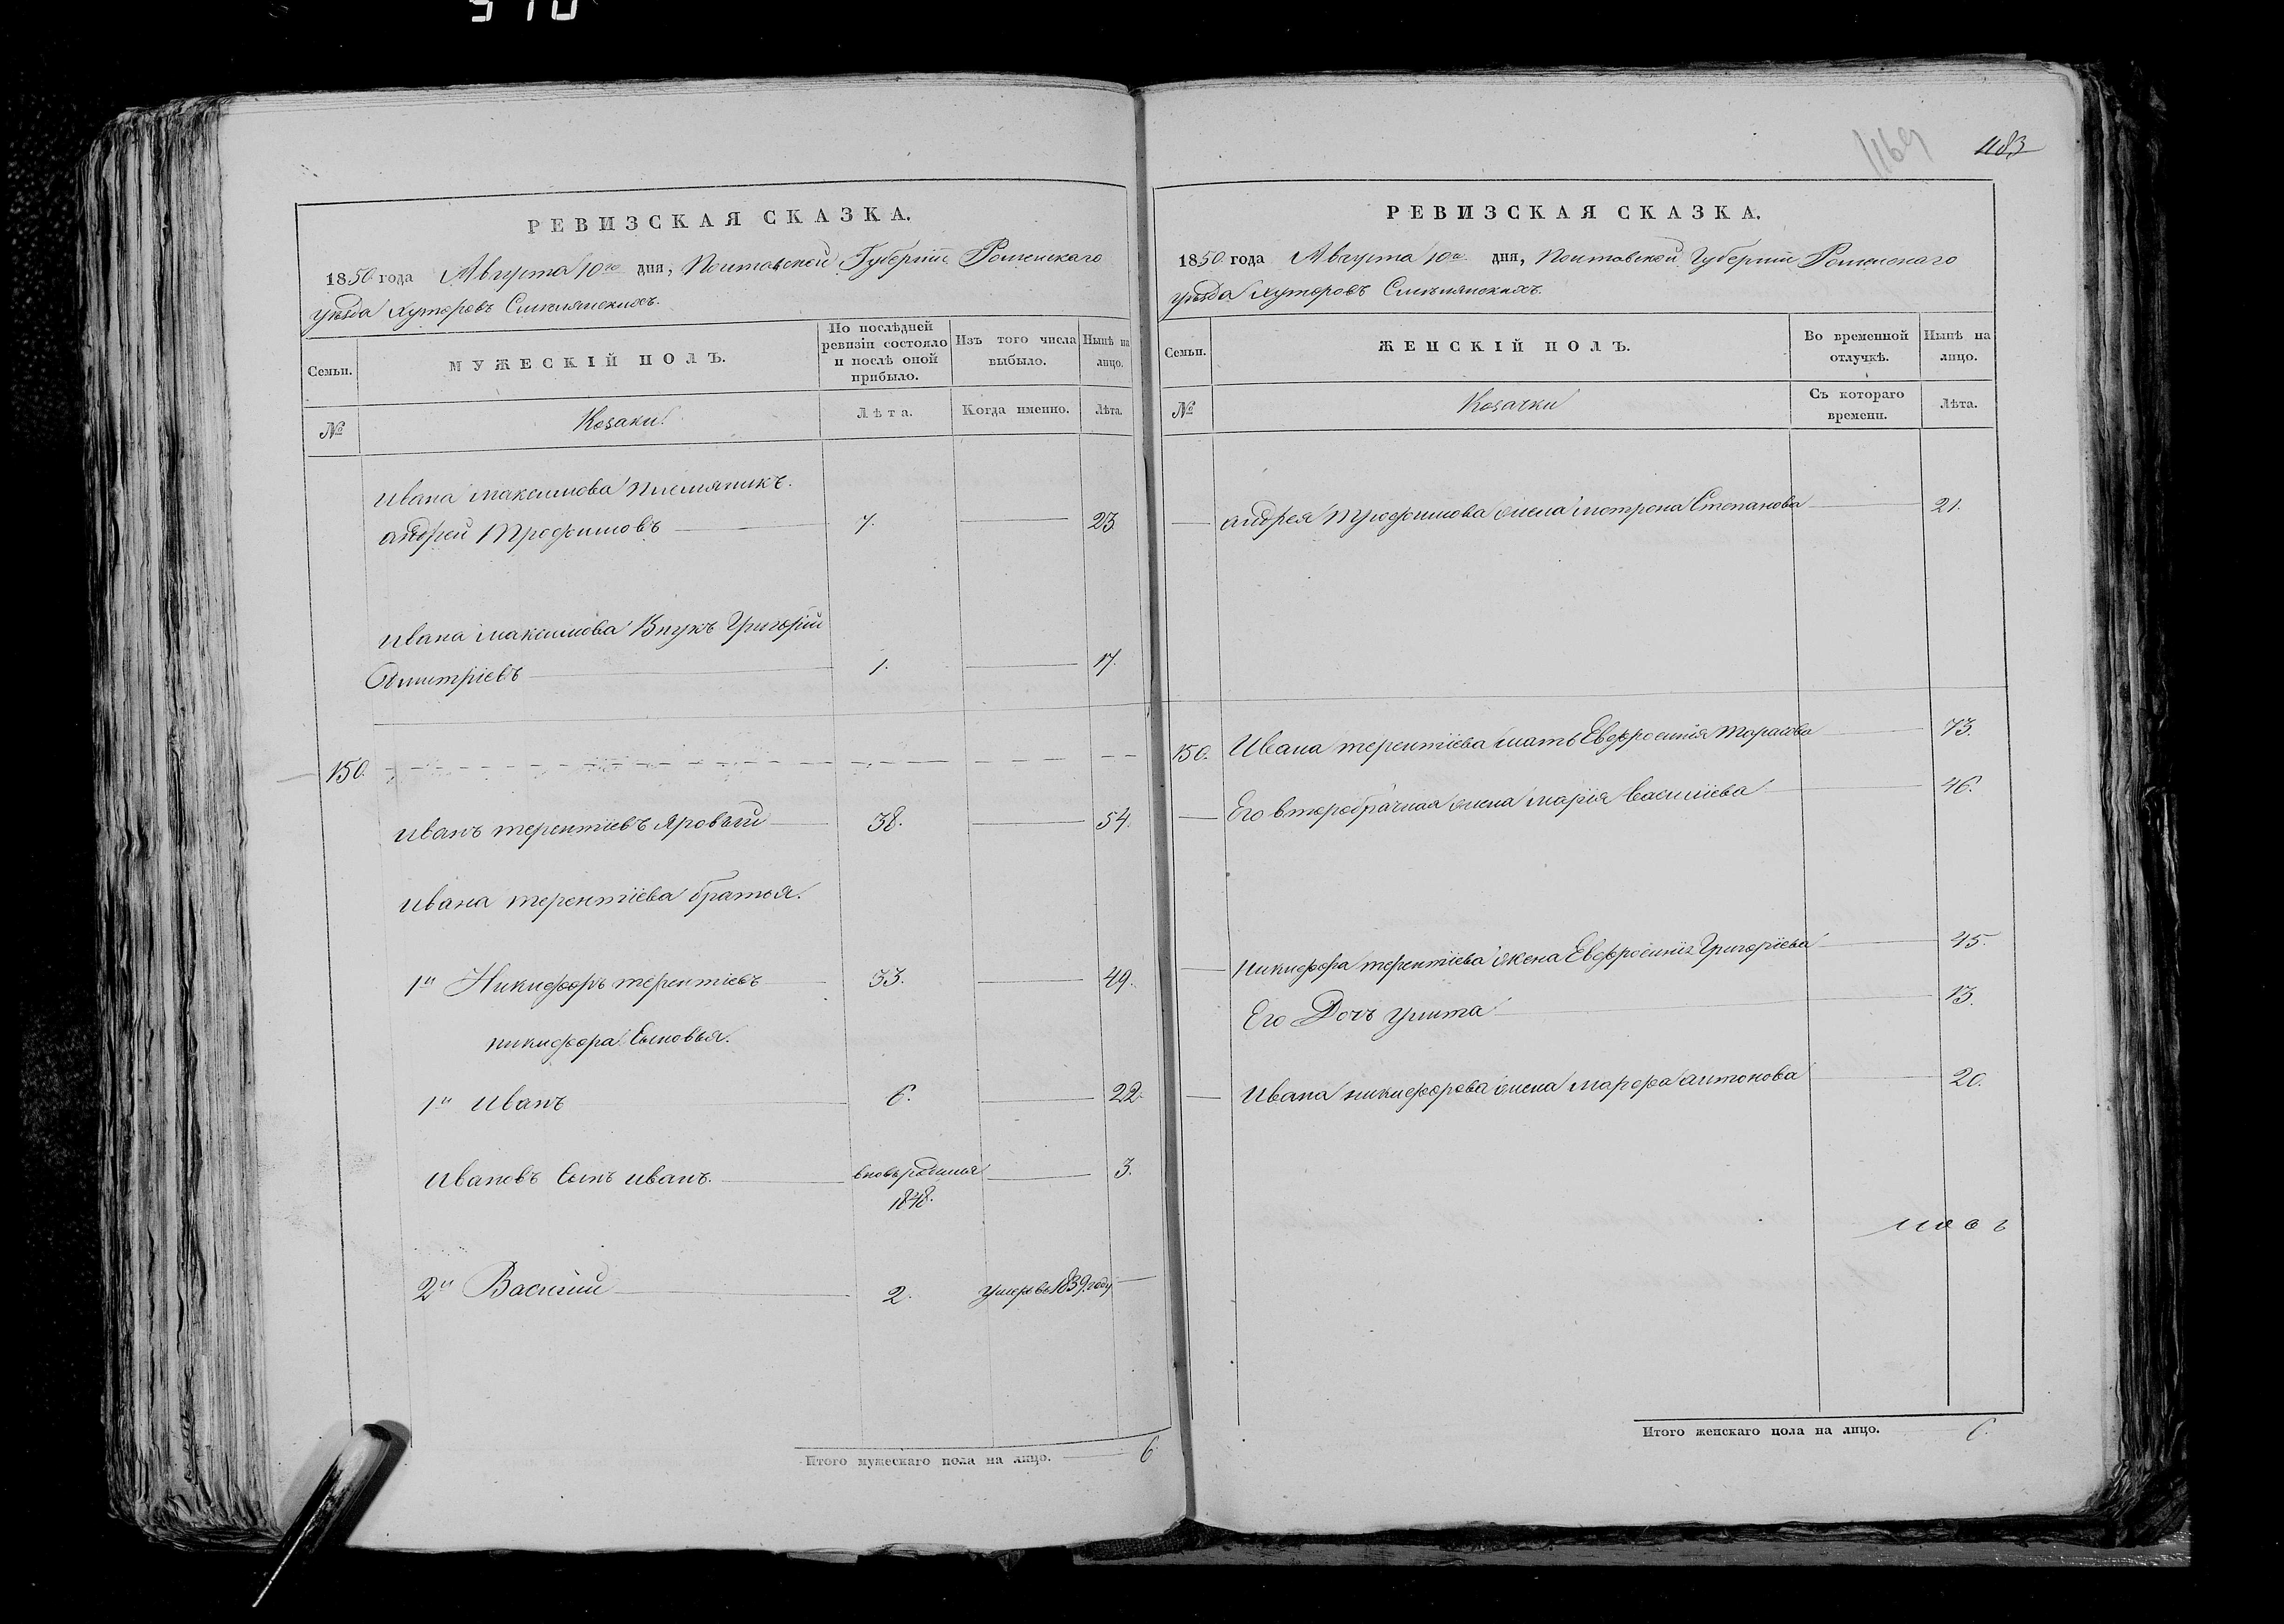 1169 1183
РЕВИЗСКАЯ СКАЗКА.
1850 года Августа 10го дня, Полтавской Губерніи Роменскаго
уѣзда Хуторовъ
Семьи.
МУЖЕСКІЙ ПОЛЪ.
По послѣдней ревизіи состояло и послѣ оной прибыло.
Изъ того числа выбыло.
Нынѣ на лицо.
№
Козаки
Лѣта.
Когда именно.
Лѣта.
Ивана Максимова племяникъ
андрей Трофимовъ 7. 23
Ивана Максимова Внукъ Григорій
Дмитріевъ 1. 17.
150.
Иванъ терентіевъ Яровый 38. 54.
Ивана терентіева братья.
1й Никифоръ терентіевъ 33. 49.
никифора Сыновья.
1й Иванъ 6. 22.
Ивановъ Сынъ иванъ. вновьрожденъ 3.
1848.
2й Василій 2. умеръ въ 1839 году
Итого мужескаго пола на лицо. 6
РЕВИЗСКАЯ СКАЗКА.
1850 года Августа 10го дня, Полтавской Губерніи Роменскаго
уѣзда Хуторовъ
Семьи.
ЖЕНСКІЙ ПОЛЪ.
Во временной отлучкѣ.
Нынѣ на лицо.
№
Козачки
Съ котораго времени.
Лѣта.
андрея Трофимова жена мотрона Степанова 21.
150. Ивана терентіева мать Евфросинія Тарасова 73.
Его второбрачная жена марія Василіева 46.
никифора терентіева жена Евфросинія Григоріева 45.
Его Дочь Улита 13.
Ивана никифорова жена марфа антонова 20.
Итого женскаго пола на лицо. 6.